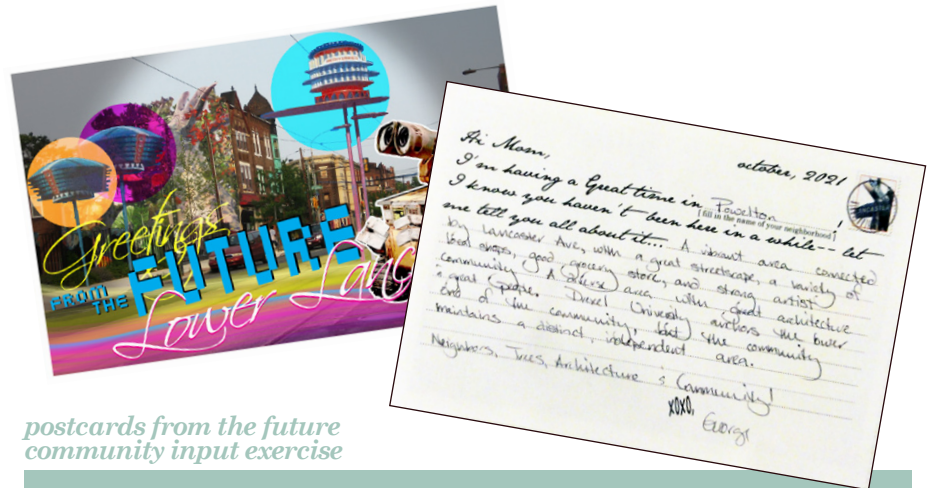 Greetings
FROM
THE
FUTURE
Lower Lanc
october, 2021
Hi Mom,
I'm having a Great time in Powelton
[ fill in the name of your neighborhood ]
I know you haven't been here in a while-- let
me tell you all about it... A vibrant area connected
by Lancaster Ave, with a great streetscape, a variety of
local shops, good grocery store, and strong artist
community. A diverse area with great architecture
& great people. Drexel University anchors the lower
end of the community, but the community
maintains a distinct, independent area.
Neighbors, Trees, Architecture & Community!
xoxo,
George
postcards from the future
community input exercise